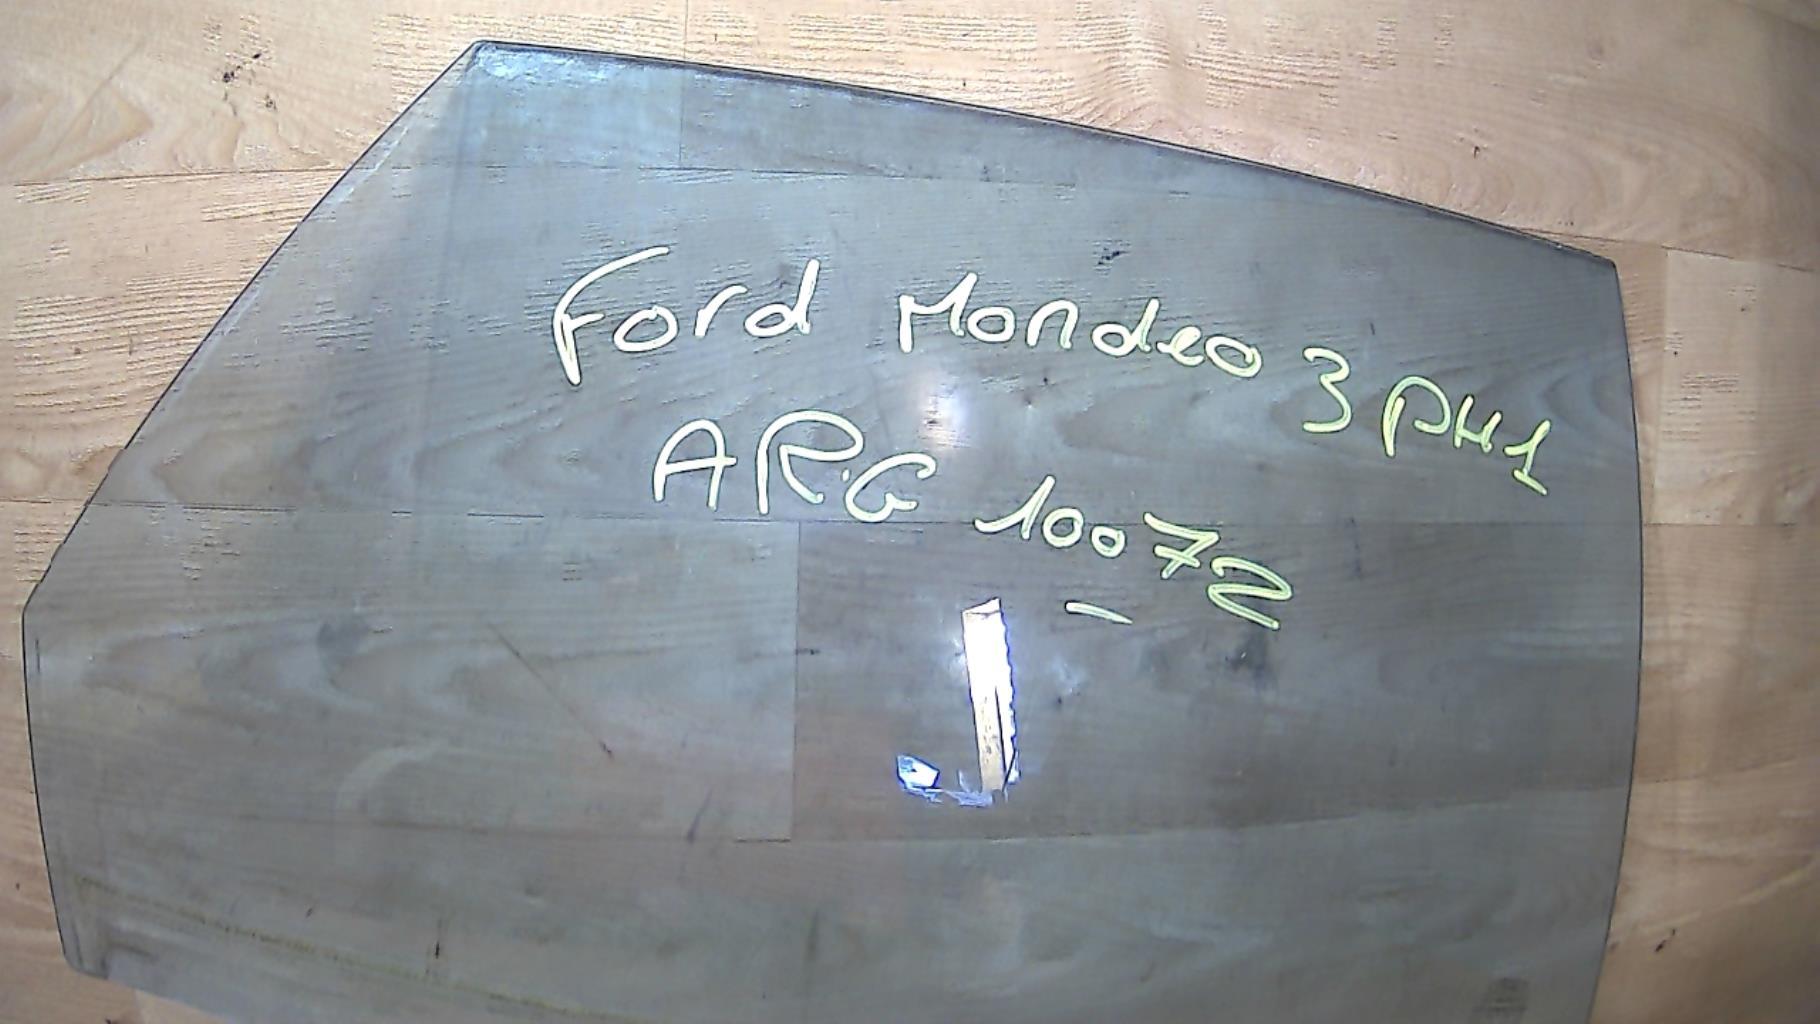 Ford Mondeo 3 PH1
AR.G 10072